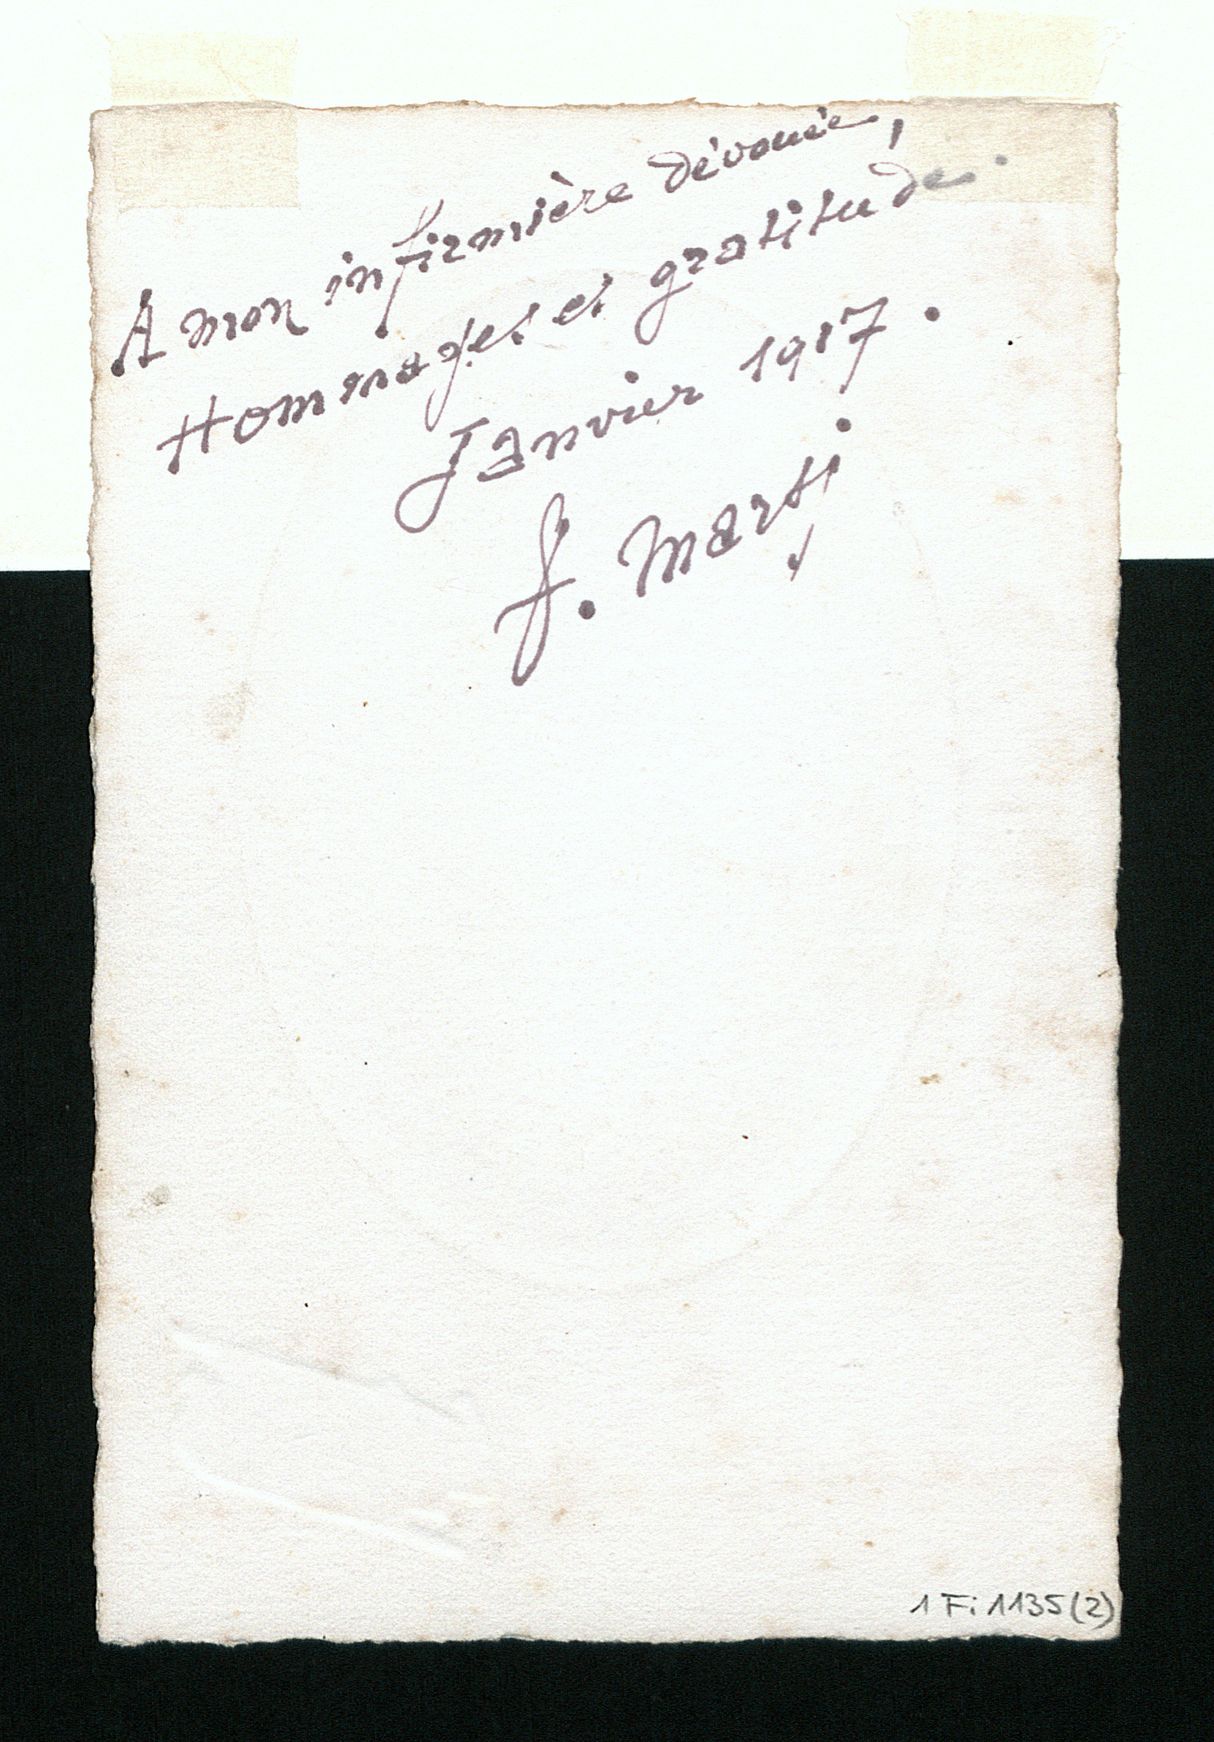 A mon infirmière dévouée,
Hommages et gratitude.
Janvier 1917.
J. Marti
1 Fi 1135 (2)